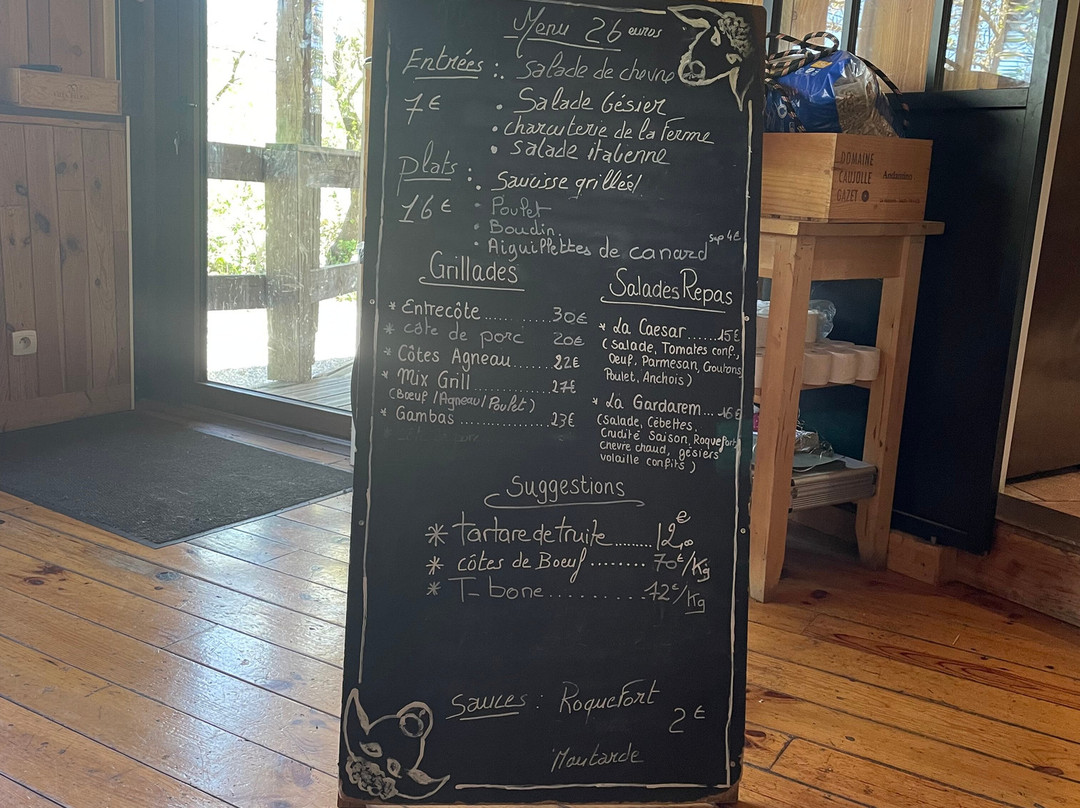 Menu 26 euros
Entrées : . Salade de chèvre
7€ . Salade Gésier
. charcuterie de la Ferme
. salade italienne
plats : . Saucisse grillée
16€ . Poulet
. Boudin.
. Aiguillettes de canard sup 4€
Grillades
* Entrecôte...... 30€
* côte de porc 20€
* Côtes Agneau...... 22€
* Mix Grill............ 27€
(Bœuf/Agneau/Poulet)
* Gambas ............... 23€
Salades Repas
* La Caesar.......15€
(Salade, Tomates conf.,
Oeuf, Parmesan, Croutons
Poulet, Anchois)
* La Gardarem....16€
(Salade, Cebettes,
Crudité Saison, Roquefort
chèvre chaud, gésiers
volaille confits)
Suggestions
* tartare de truite.......12,00€
* côtes de Boeuf ........ 70€/Kg
* T-bone..........72€/Kg
Sauces : Roquefort
2€
Moutarde
DOMAINE
CAUJOLLE
GAZET